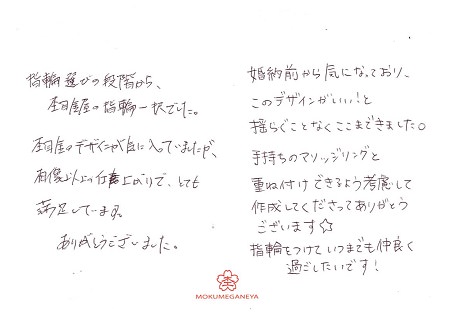 指輪選びの段階から、
杢目金屋の指輪一択でした。
杢目金屋のデザインが気に入っていましたが、
想像以上の仕上がりで、とても
満足しています。
ありがとうございました。
婚約前から気になっており、
このデザインがいい！と
揺らぐことなくここまできました。
手持ちのマリッジリングと
重ね付けできるよう考慮して
作成してくださってありがとう
ございます☆
指輪をつけていつまでも仲良く
過ごしたいです！
MOKUMEGANEYA